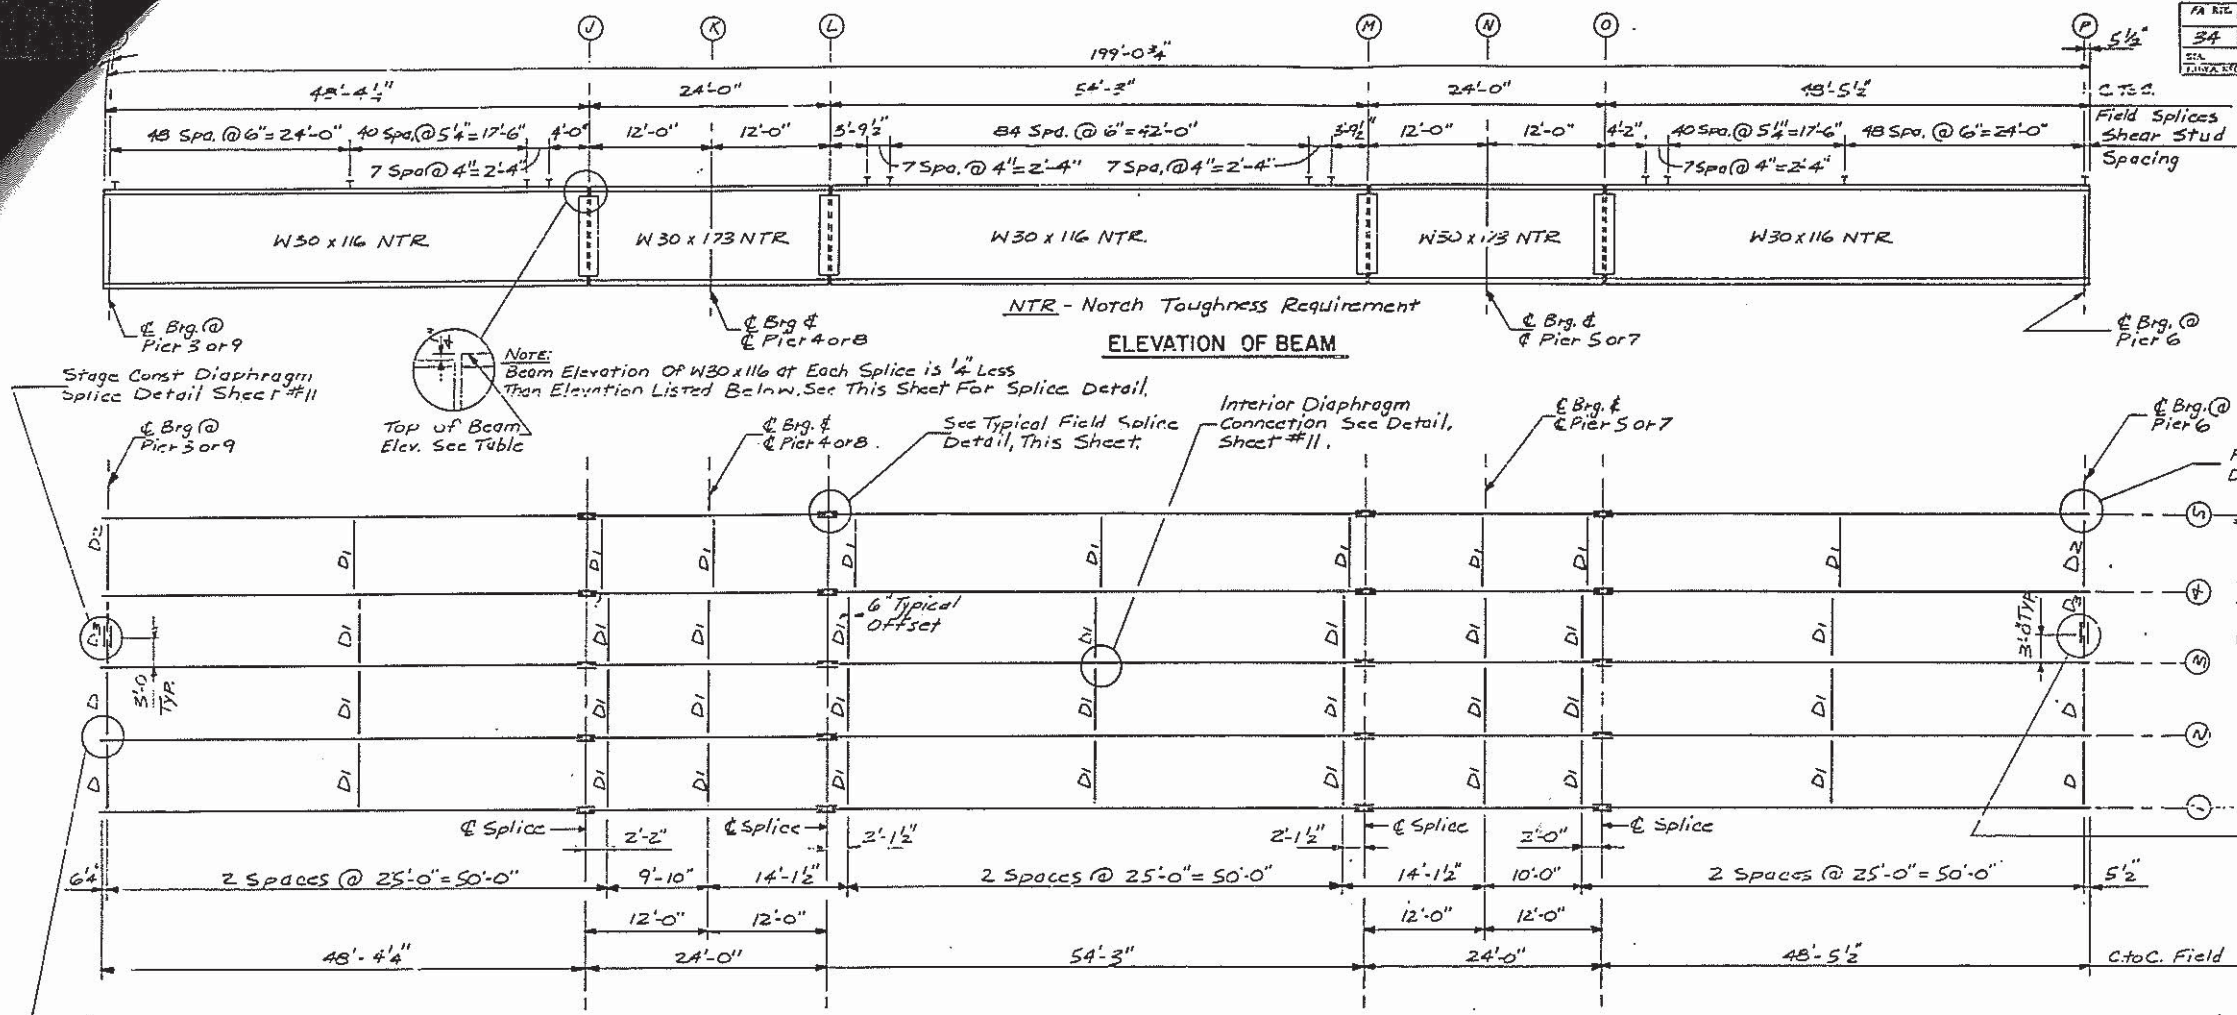 J K L M N O P
FA RTE.
34
199'-0¾"
5½"
48'-4¼" 24'-0" 54'-3" 24'-0" 48'-5½" C. To C.
Field Splices
48 Spa. @ 6"=24'-0" 40 Spa. @ 5¼"=17'-6" 4'-0" 12'-0" 12'-0" 3'-9½" 84 Spa. @ 6"=42'-0" 3'-9½" 12'-0" 12'-0" 4'-2" 40 Spa. @ 5¼"=17'-6" 48 Spa. @ 6"=24'-0" Shear Stud
7 Spa @ 4"=2'-4" 7 Spa. @ 4"=2'-4" 7 Spa. @ 4"=2'-4" 7 Spa @ 4"=2'-4" Spacing
W30 x 116 NTR W30 x 173 NTR W30 x 116 NTR. W30 x 173 NTR W30 x 116 NTR
NTR - Notch Toughness Requirement
ELEVATION OF BEAM
℄ Brg. @
Pier 3 or 9
℄ Brg ⅊
℄ Pier 4 or 8
℄ Brg. &
℄ Pier 5 or 7
℄ Brg. @
Pier 6
NOTE:
Beam Elevation Of W30 x 116 at Each Splice is ¼" Less
Than Elevation Listed Below. See This Sheet For Splice Detail.
Stage Const Diaphragm
Splice Detail Sheet #11
℄ Brg @
Pier 3 or 9
Top of Beam
Elev. See Table
℄ Brg. &
℄ Pier 4 or 8.
See Typical Field Splice
Detail, This Sheet.
Interior Diaphragm
Connection See Detail,
Sheet #11.
℄ Brg. &
℄ Pier 5 or 7
℄ Brg. @
Pier 6
5
D2 D1 D1 D1 D1 D1 D1 D1 D1 D1 D2
4
6" Typical
Offset
D3 D1 D1 D1 D1 D1 D1 D1 D1 D1 D3
3'-0 TYP. 3'-0 TYP.
3
D D1 D1 D1 D1 D1 D1 D1 D1 D1 D
2
D D1 D1 D1 D1 D1 D1 D1 D1 D1 D
1
℄ Splice ℄ Splice ℄ Splice ℄ Splice
2'-2" 2'-1½" 2'-1½" 2'-0"
6¼" 2 Spaces @ 25'-0"=50'-0" 9'-10" 14'-1½" 2 Spaces @ 25'-0"=50'-0" 14'-1½" 10'-0" 2 Spaces @ 25'-0"=50'-0" 5½"
12'-0" 12'-0" 12'-0" 12'-0"
48'-4¼" 24'-0" 54'-3" 24'-0" 48'-5½" C. to C. Field